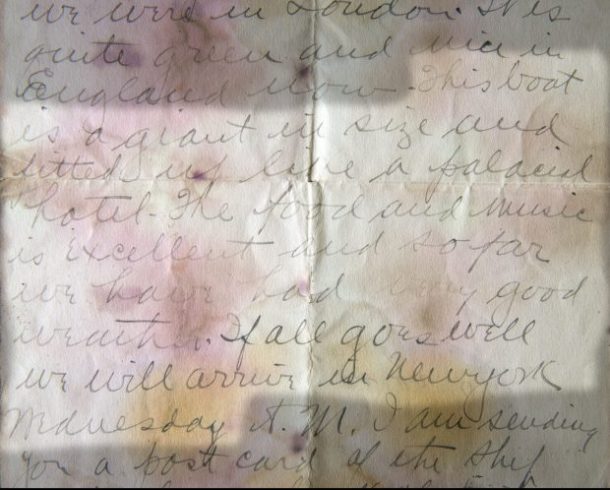 we were in London. It is
quite green and nice in
England now. This boat
is a giant in size and
fitted up like a palacial
hotel. The food and music
is excellent and so far
we have had very good
weather. If all goes well
we will arrive in New York
Wednesday A.M. I am sending
you a post card of the ship